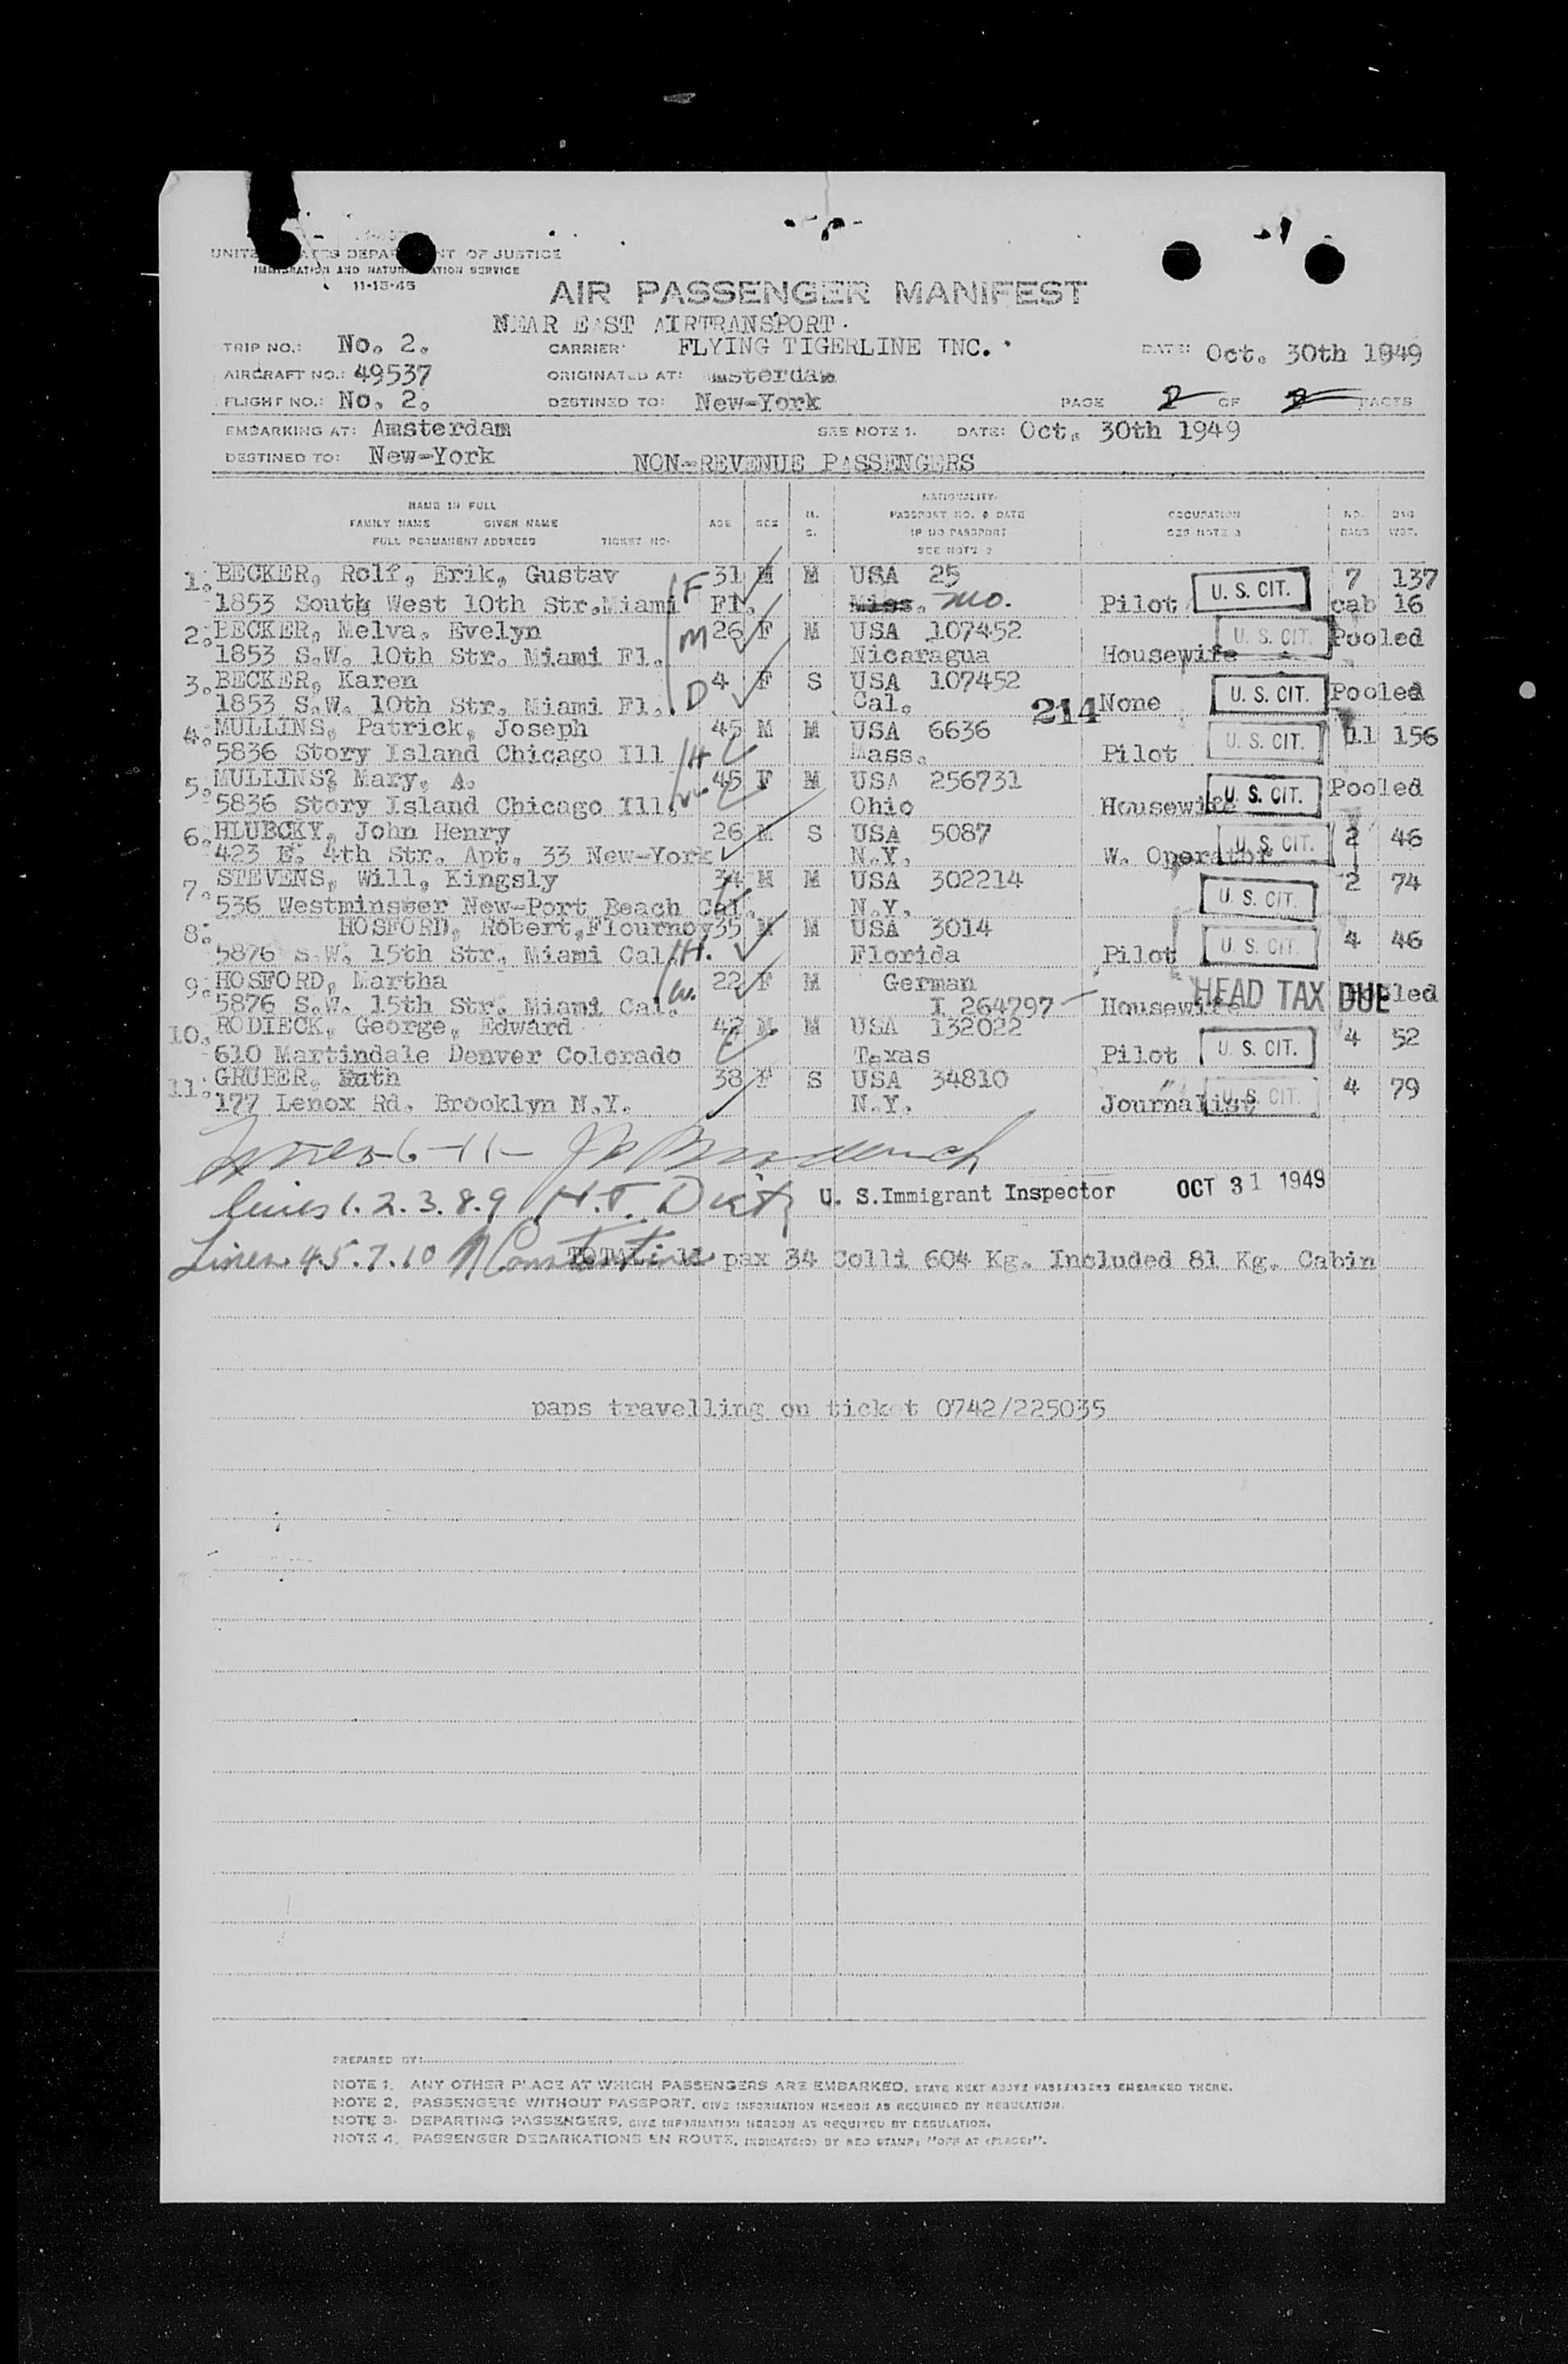 UNITED STATES DEPARTMENT OF JUSTICE
IMMIGRATION AND NATURALIZATION SERVICE
11-15-45
AIR PASSENGER MANIFEST
NEAR EAST AIRTRANSPORT.
TRIP NO.: No. 2. CARRIER: FLYING TIGERLINE INC. DATE: Oct. 30th 1949
AIRCRAFT NO.: 49537 ORIGINATED AT: Amsterdam
FLIGHT NO.: No. 2. DESTINED TO: New-York PAGE 2 OF 2 PAGES
EMBARKING AT: Amsterdam SEE NOTE 1. DATE: Oct. 30th 1949
DESTINED TO: New-York NON-REVENUE PASSENGERS
NAME IN FULL
FAMILY NAME GIVEN NAME
FULL PERMANENT ADDRESS TICKET NO.
AGE SEX M. S.
NATIONALITY
PASSPORT NO. & DATE
IF NO PASSPORT
SEE NOTE 2
OCCUPATION
SEE NOTE 3
NO. BAGS BAG WGT.
1. BECKER, Rolf, Erik, Gustav F 31 M M USA 25 U. S. CIT. 7 137
1853 South West 10th Str. Miami Fl. Miss. Mo. Pilot cab 16
2. BECKER, Melva, Evelyn M 26 F M USA 107452 U. S. CIT. Pooled
1853 S.W. 10th Str. Miami Fl. Nicaragua Housewife
3. BECKER, Karen D 4 F S USA 107452 U. S. CIT. Pooled
1853 S.W. 10th Str. Miami Fl. Cal. 214 None
4. MULLINS, Patrick, Joseph 45 M M USA 6636 U. S. CIT. 11 156
5836 Story Island Chicago Ill H Mass. Pilot
5. MULLINS? Mary, A. 45 F M USA 256731 U. S. CIT. Pooled
5836 Story Island Chicago Ill. W. Ohio Housewife
6. HLUBCKY, John Henry 26 M S USA 5087 U. S. CIT. 2 46
423 E. 4th Str. Apt. 33 New-York N.Y. W. Operator
7. STEVENS, Will, Kingsly 34 M M USA 302214 U. S. CIT. 2 74
536 Westminster New-Port Beach Cal. N.Y.
8. HOSFORD, Robert, Flournoy 35 M M USA 3014 U. S. CIT. 4 46
5876 S.W. 15th Str. Miami Cal. H. Florida Pilot
9. HOSFORD, Martha 22 F M German HEAD TAX DUE Pooled
5876 S.W. 15th Str. Miami Cal. W. I 264797 Housewife
10. RODIECK, George, Edward 42 M M USA 132022 U. S. CIT. 4 52
610 Martindale Denver Colorado Texas Pilot
11. GRUBER, Ruth 38 F S USA 34810 U. S. CIT. 4 79
177 Lenox Rd. Brooklyn N.Y. N.Y. Journalist
Lines-6-11-
lines 1.2.3.8.9 H.T. Dietz U. S. Immigrant Inspector OCT 31 1949
Lines. 4.5.7.10 N Constantine TOTAL: 11 pax 34 Colli 604 Kg. Included 81 Kg. Cabin
paps travelling on ticket 0742/225035
PREPARED BY:
NOTE 1. ANY OTHER PLACE AT WHICH PASSENGERS ARE EMBARKED, STATE NEXT ABOVE PASSENGERS EMBARKED THERE.
NOTE 2. PASSENGERS WITHOUT PASSPORT, GIVE INFORMATION HEREON AS REQUIRED BY REGULATION.
NOTE 3. DEPARTING PASSENGERS, GIVE INFORMATION HEREON AS REQUIRED BY REGULATION.
NOTE 4. PASSENGER DEBARKATIONS EN ROUTE, INDICATE(D) BY RED STAMP: "OFF AT (PLACE)".